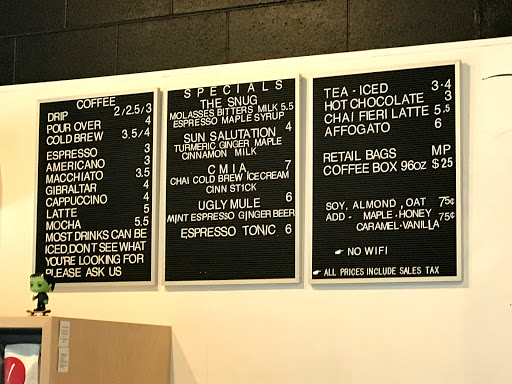 COFFEE
DRIP 2/2.5/3
POUR OVER 4
COLD BREW 3.5/4
ESPRESSO 3
AMERICANO 3
MACCHIATO 3.5
GIBRALTAR 4
CAPPUCCINO 4
LATTE 5
MOCHA 5.5
MOST DRINKS CAN BE
ICED,DONT SEE WHAT
YOU'RE LOOKING FOR
PLEASE ASK US
SPECIALS
THE SNUG
MOLASSES BITTERS MILK 5.5
ESPRESSO MAPLE SYRUP
SUN SALUTATION 4
TURMERIC GINGER MAPLE
CINNAMON MILK
CMIA 7
CHAI COLD BREW ICECREAM
CINN STICK
UGLY MULE 6
MINT ESPRESSO GINGER BEER
ESPRESSO TONIC 6
TEA - ICED 3·4
HOT CHOCOLATE 3
CHAI FIERI LATTE 5.5
AFFOGATO 6
RETAIL BAGS MP
COFFEE BOX 96oz $25
SOY, ALMOND, OAT 75¢
ADD - MAPLE-HONEY 75¢
CARAMEL-VANILLA
☛ NO WIFI
☛ ALL PRICES INCLUDE SALES TAX